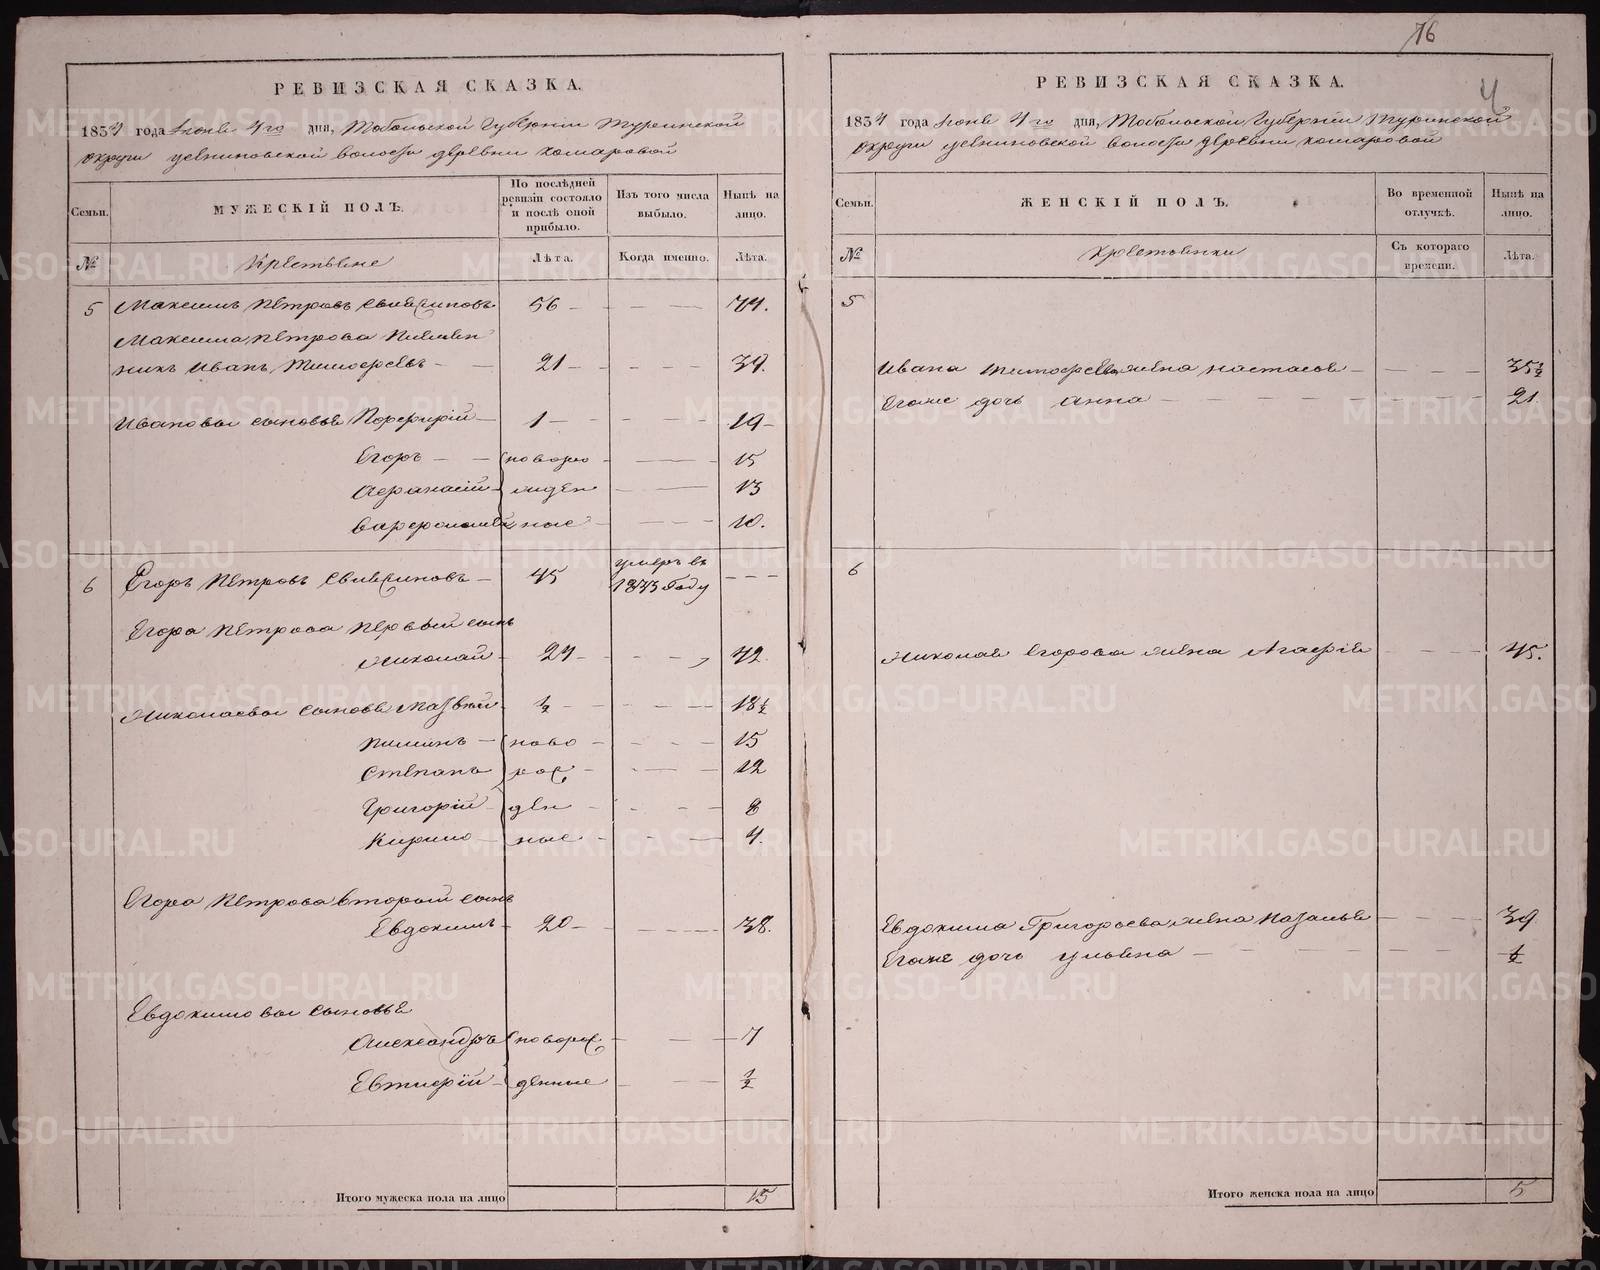 76
РЕВИЗСКАЯ СКАЗКА.
1834 года Июне 4го дня, Тобольской Губернии Туринской
округи волости деревни Комаровой
Семьи.
МУЖЕСКІЙ ПОЛЪ.
По послѣдней ревизіи состояло и послѣ оной прибыло.
Изъ того числа выбыло.
Нынѣ на лицо.
№
Крестьяне
Лѣта.
Когда именно.
Лѣта.
5 Максимъ Петровъ 56 - - - - 74.
Максима Петрова Племен
никъ Иванъ Тимофеевъ - - 21 - - - - 39.
Ивановы сыновье Порфирій - 1 - - - - 19 -
Егоръ - - новорo - — - 15
Афанасій - жден - — - 13
Варфоломей ные - - - - 10.
6 Егоръ Петровъ - 45 умеръ въ - - -
1833 Году
Егора Петрова первый сынъ
Николай - 24 - - - - 42.
Николаевы сыновье Матвей - ½ - - - - 18½
Пиминъ - ново - - - - 15
Степанъ рож - - — - 12
Григорій - ден - - - - 8
Кирило - ные - - - - 4.
Егора Петрова второй сынъ
Евдокимъ - 20 - - - - 38.
Евдокимовы сыновье
Александръ новорож - - 7
Евтифій - денные - - ½
Итого мужеска пола на лицо 15
4
РЕВИЗСКАЯ СКАЗКА.
1834 года Июне 4го дня, Тобольской Губернии Туринской
округи волости деревни Комаровой
Семьи.
ЖЕНСКІЙ ПОЛЪ.
Во временной отлучкѣ.
Нынѣ на лицо.
№
Крестьянки
Съ котораго времени.
Лѣта.
5
Ивана Тимофеева жена Настасье - - - - 35½
Егоже дочь Анна - - - - 21.
6
Николае Егорова жена Агафіе - - - 45.
Евдокима Григорьева жена Маланье - - - - 39.
Егоже дочь Ульяна - - - - ½
Итого женска пола на лицо 5
METRIKI.GASO-URAL.RU